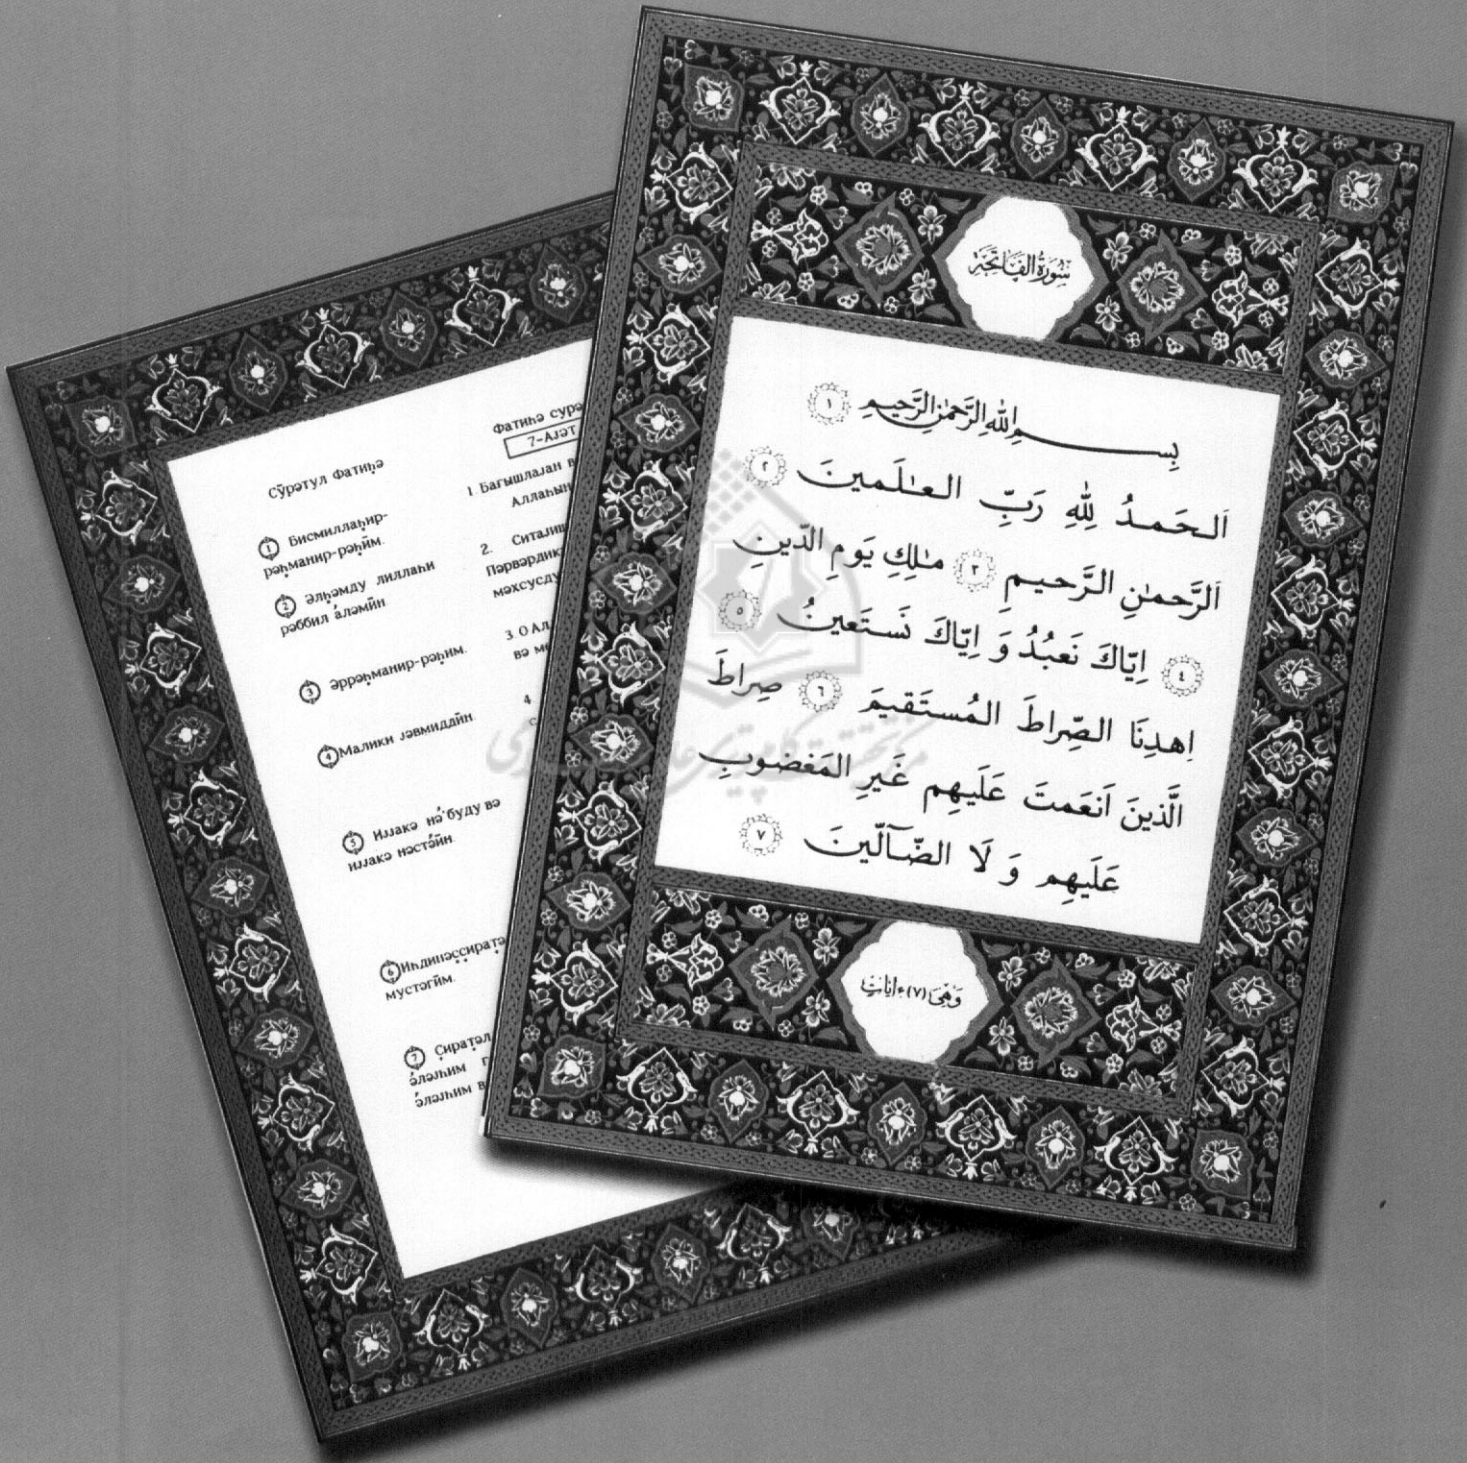 سُورَةُ الفَاتِحَةِ
بِسـمِ اللهِ الرَّحمٰنِ الرَّحيمِ ١
اَلـحَمـدُ لِلّٰهِ رَبِّ العـٰلَمينَ ٢
اَلرَّحمٰنِ الرَّحيمِ ٣ مـٰلِكِ يَومِ الدّينِ
٤ اِيّاكَ نَعبُدُ وَ اِيّاكَ نَستَعينُ ٥
اِهدِنَا الصِّراطَ المُستَقيمَ ٦ صِراطَ
الَّذينَ اَنعَمتَ عَلَيهِم غَيرِ المَغضوبِ
عَلَيهِم وَ لَا الضّـآلّينَ ٧
وَهِىَ (٧) ءاياتٍ
Сӯрәтул Фатиһә
1 Бисмиллаһир-
рәһманир-рәһӣм.
2 Әлһәмду лиллаһи
рәббил әләмӣн
3 Әррәһманир-рәһим.
4 Малики јәвмиддӣн.
5 Ијјакә нә'буду вә
ијјакә нәстәӣн.
6 Иһдинәссиратә
мустәгӣм.
7 Сиратәл
әләјһим
әләјһим в
Фатиһә сурә
7-АЈӘТ
1. Бағышлајан в
Аллаһын
2. Ситајиш
Пәрвәрдик
мәхсусду
3. О Ал
вә м
4